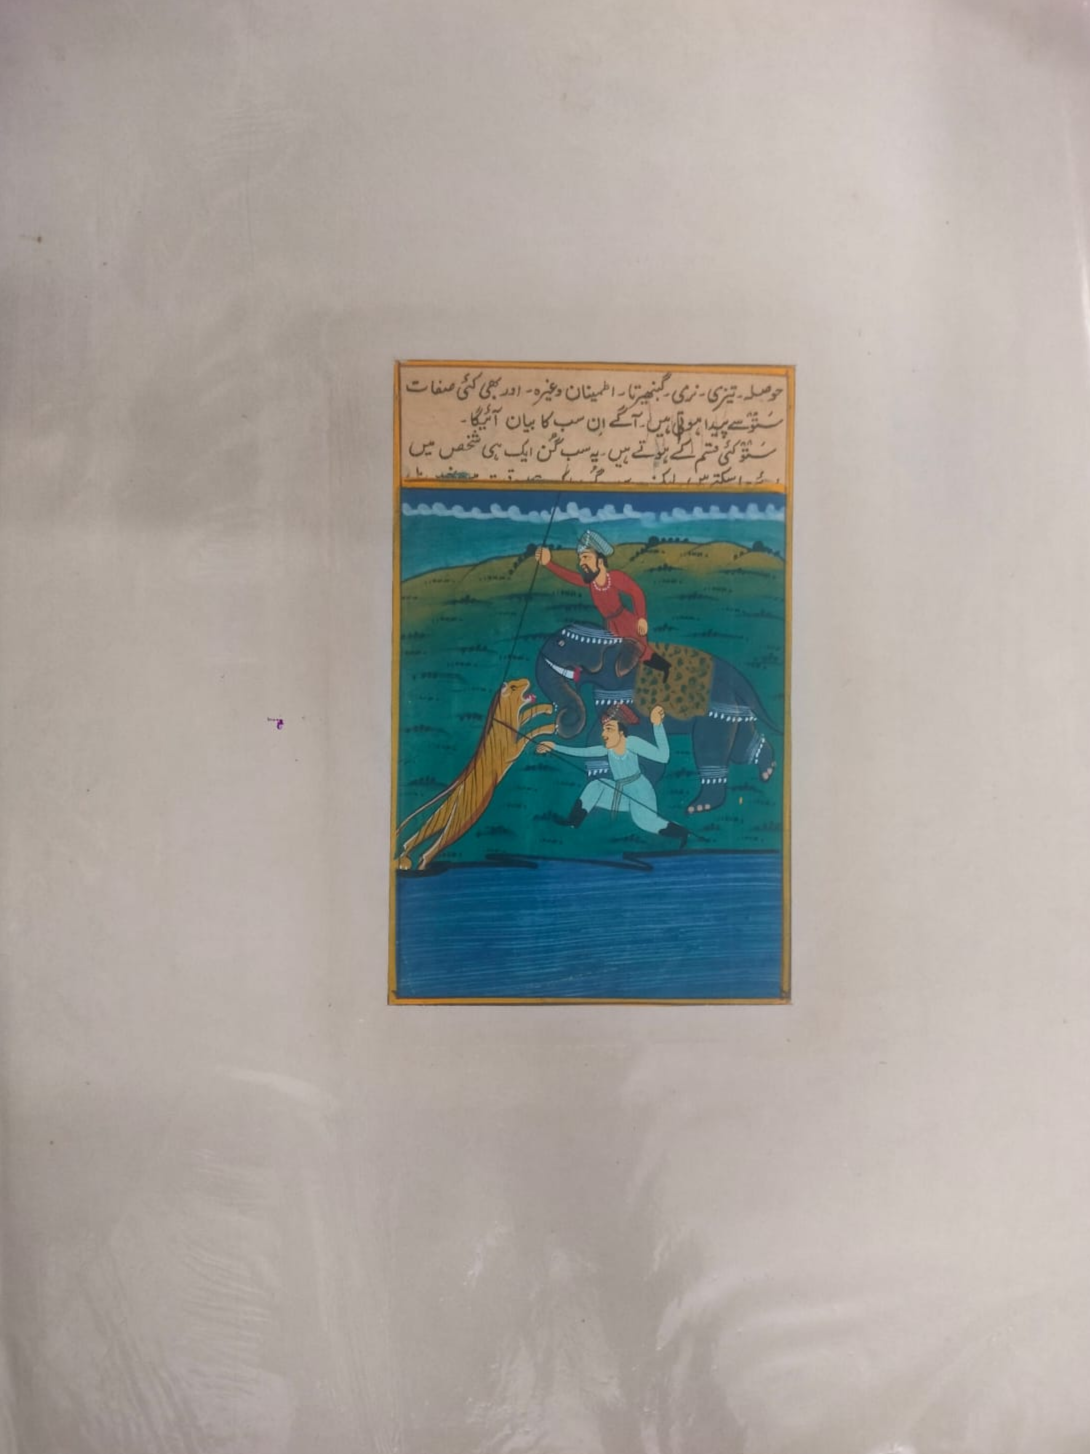 حوصلہ۔ تیزی۔ نرمی۔ گنبھیرتا۔ اطمینان وغیرہ۔ اور بھی کئی صفات
سَتوْ سے پیدا ہوتی ہیں۔ آگے اِن سب کا بیان آئیگا۔
سَتوْ کئی قسم کے ہوتے ہیں۔ یہ سب گُن ایک ہی شخص میں